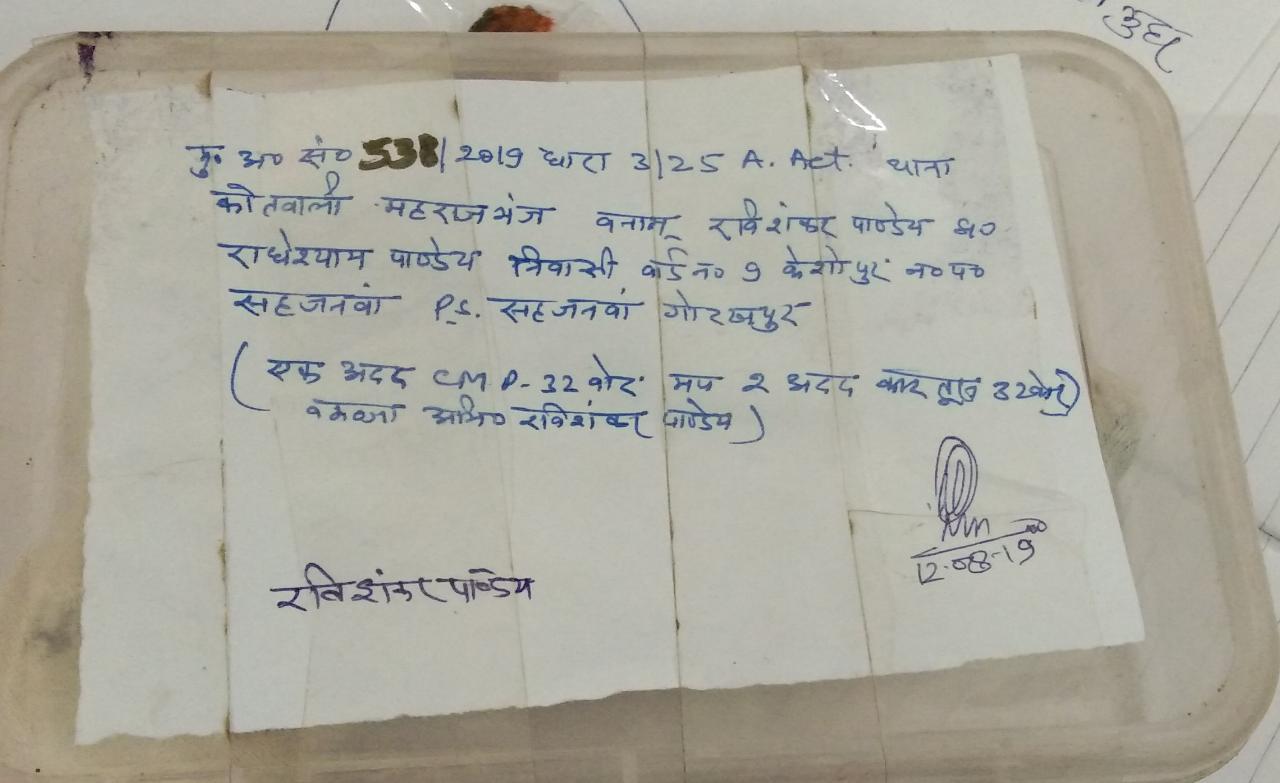 सुध
मु० अ० सं० 538/2019 धारा 3/25 A. Act. थाना
कोतवाली महराजगंज बनाम् रविशंकर पाण्डेय S/0
राधेश्याम पाण्डेय निवासी वार्ड न० 9 केशोपुर न० प०
सहजनवां P.S. सहजनवां गोरखपुर
(एक अदद CMP-32 बोर मय २ अदद कारतूस 32 बोर)
बकब्जा अभि० रविशंकर पाण्डेय)
12-08-19
रविशंकर पाण्डेय